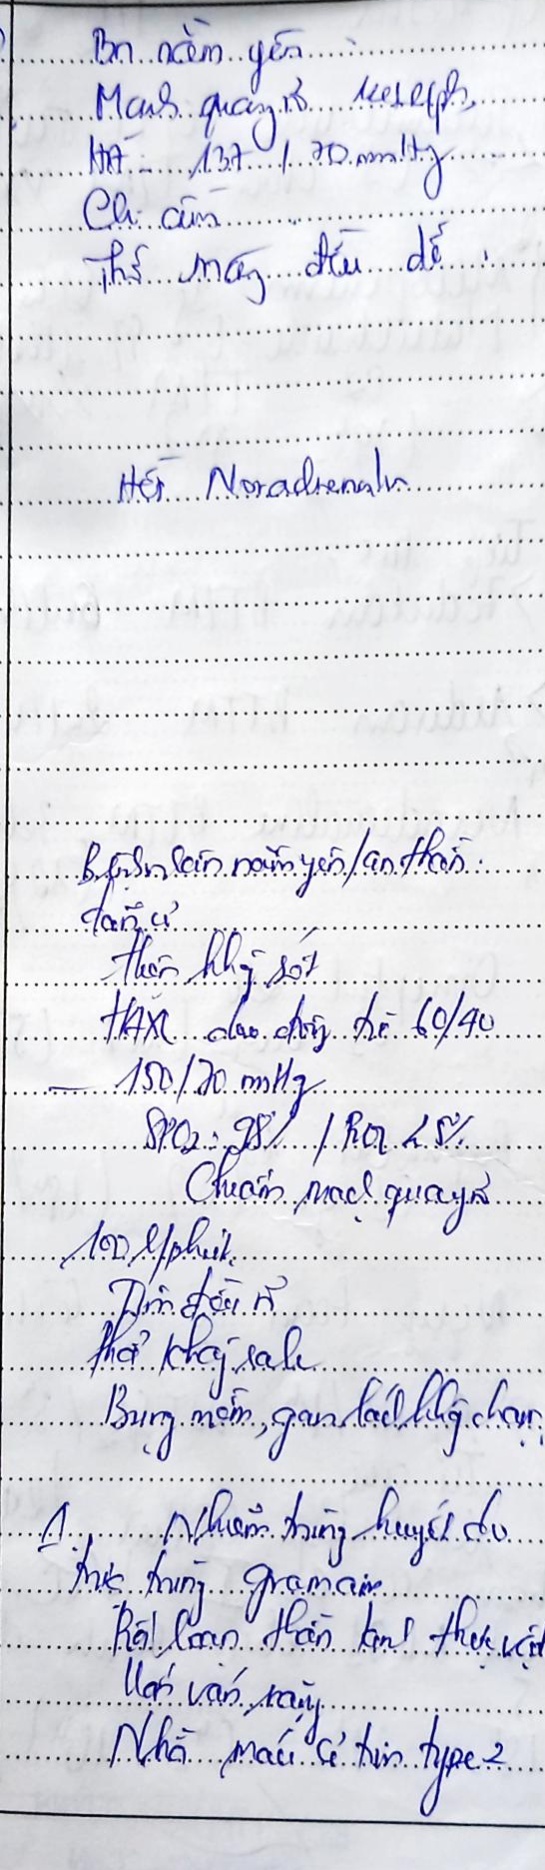 Bn nằm yên
Mạch quay rõ l/ph
HA 137 / 70 mmHg
Chi ấm
Thở máy đều dễ.
Hết Noradrenalin
nằm yên / an thần
thở
không sốt
HAXL dao động từ 60/40
— 150/70 mmHg
SPO2: 98% /
mạch quay rõ
100 l/phút
Tim đều rõ
Phổi không rale
Bụng mềm, gan lách không chạm
1. Nhiễm trùng huyết do
trực trùng gram âm
Rối loạn thần kinh thực vật
Uốn ván
Nhồi máu cơ tim type 2